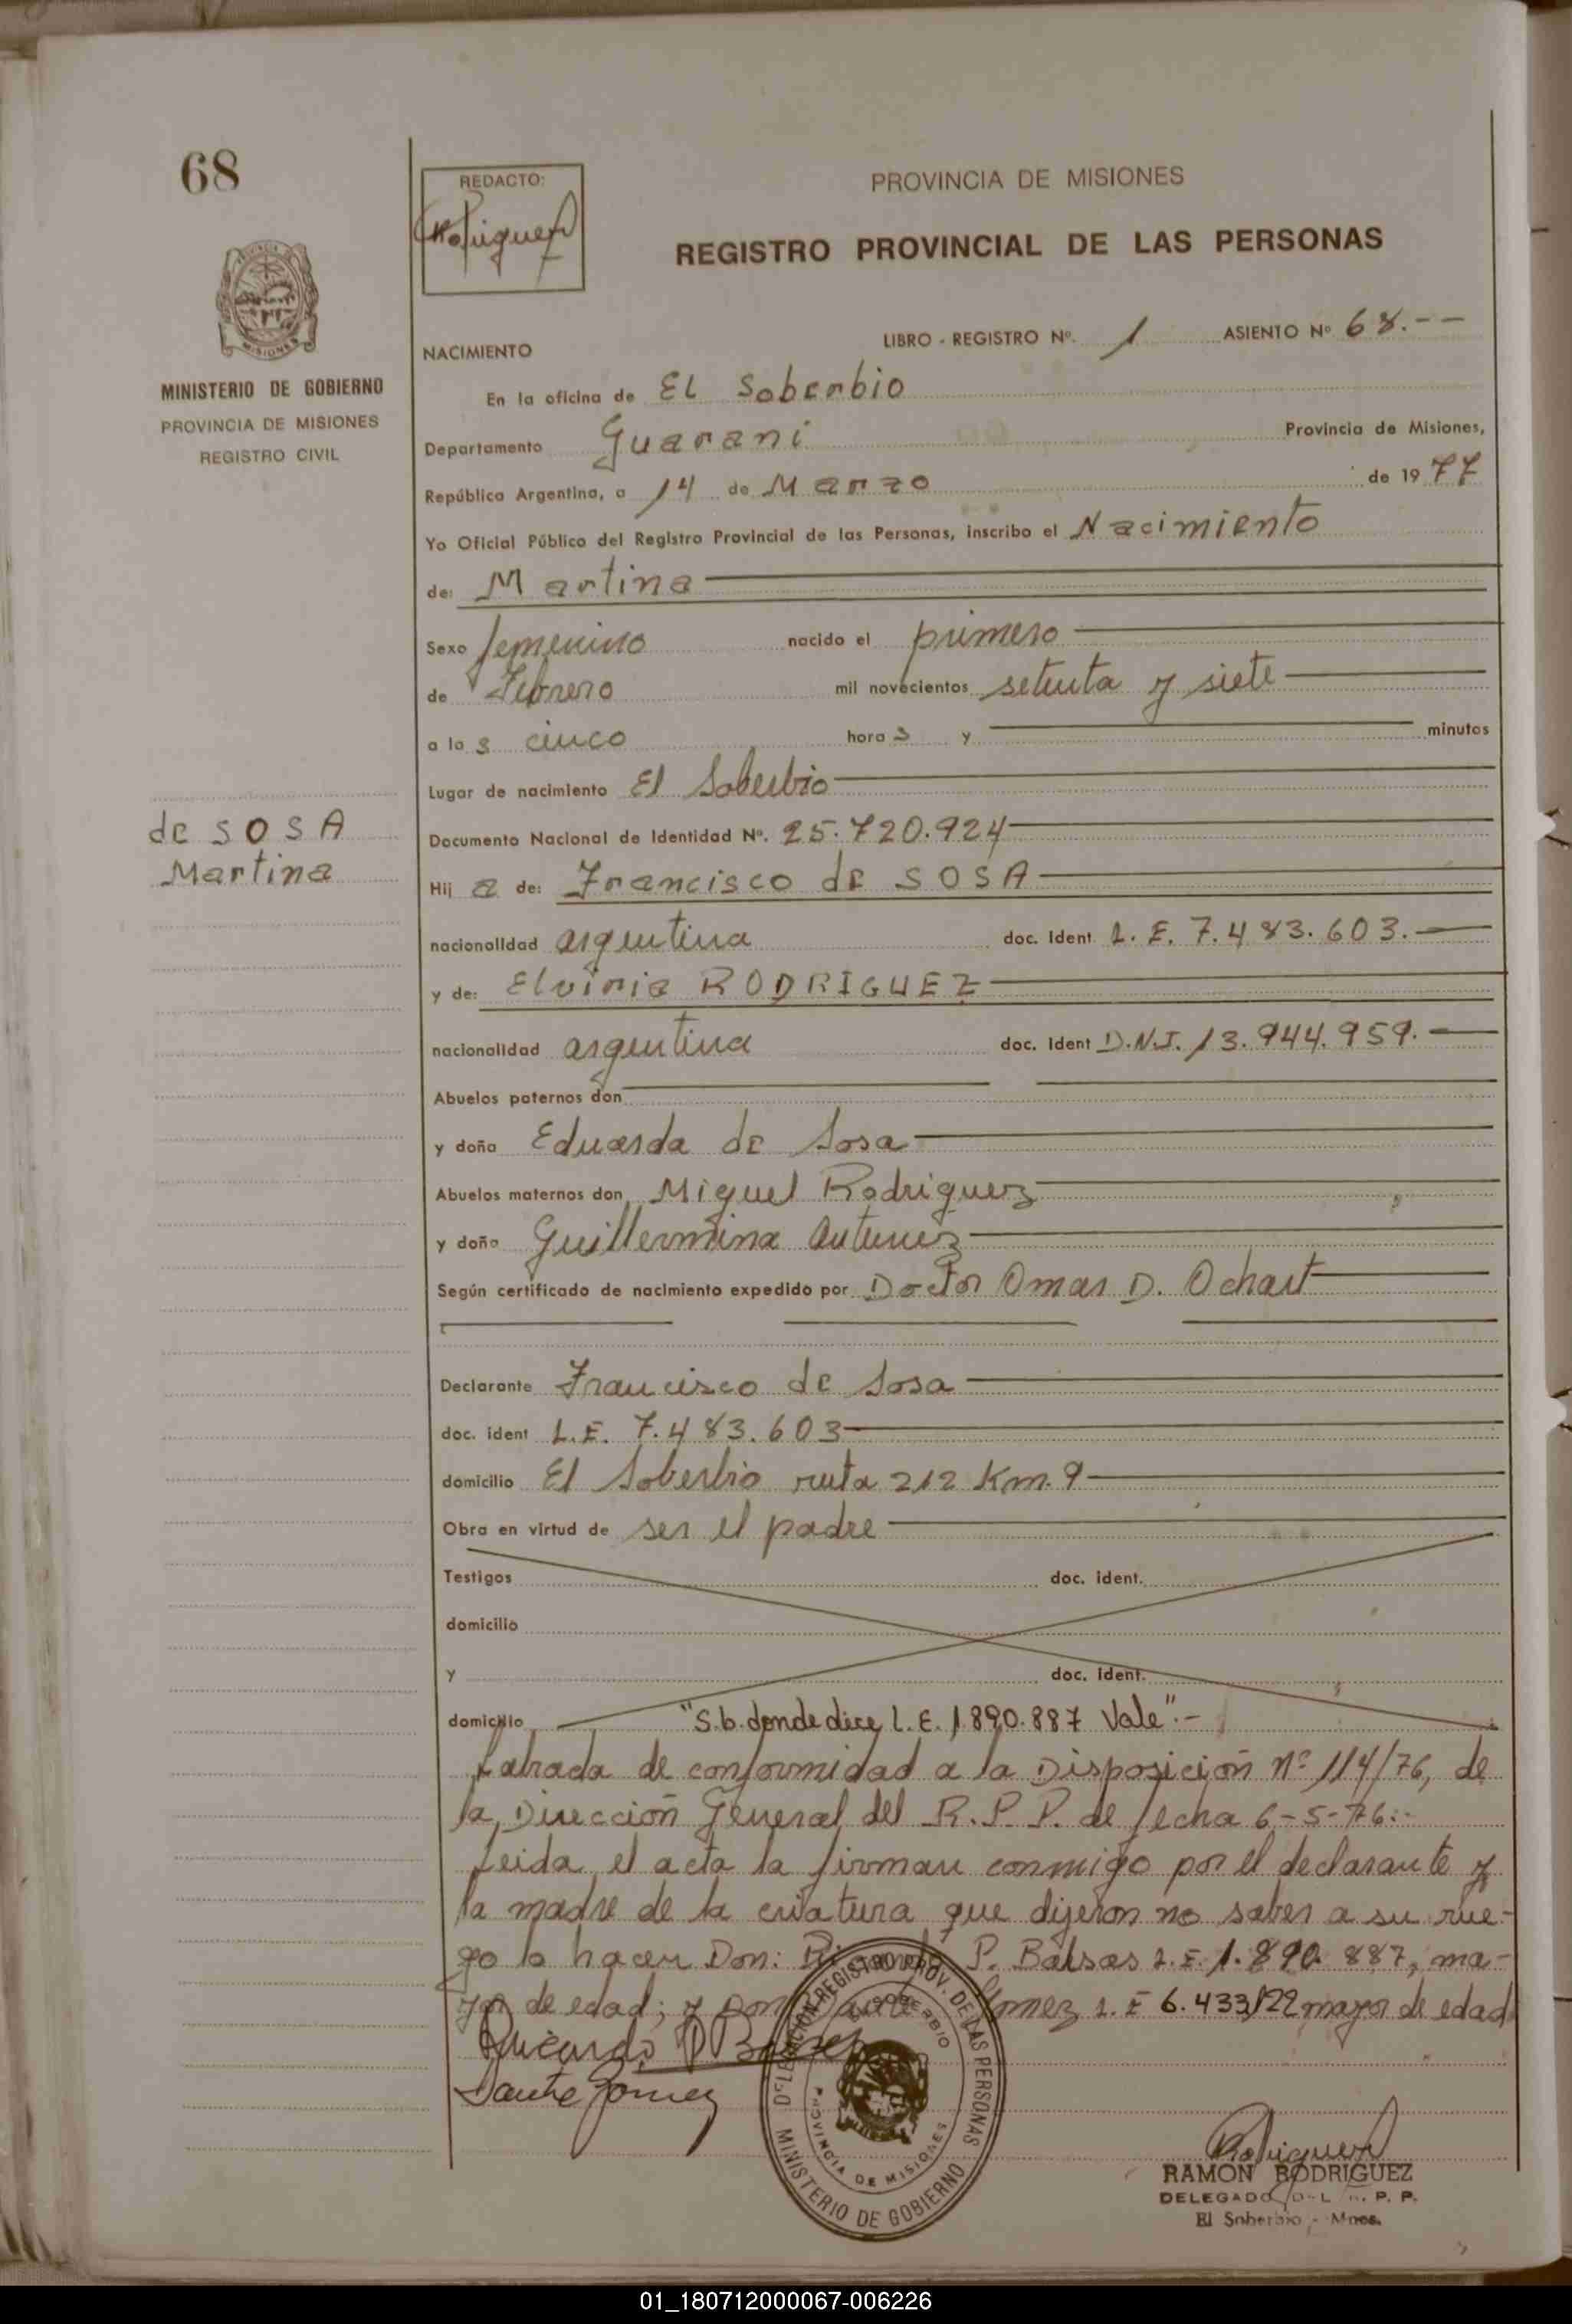 68
REDACTO:
PROVINCIA DE MISIONES
REGISTRO PROVINCIAL DE LAS PERSONAS
MISIONES
MINISTERIO DE GOBIERNO
PROVINCIA DE MISIONES
REGISTRO CIVIL
NACIMIENTO LIBRO - REGISTRO Nº. 1 ASIENTO Nº 68.--
En la oficina de EL Soberbio
Departamento Guarani Provincia de Misiones,
República Argentina, a 14 de Marzo de 1977
Yo Oficial Público del Registro Provincial de las Personas, inscribo el Nacimiento
de: Martina
Sexo femenino nacido el primero
de Febrero mil novecientos setenta y siete
a las cinco horas y minutos
Lugar de nacimiento El Soberbio
de SOSA
Martina
Documento Nacional de Identidad Nº. 25.720.924
Hija de: Francisco de SOSA
nacionalidad argentina doc. Ident L.E. 7.483.603.
y de: Elviria RODRIGUEZ
nacionalidad argentina doc. Ident D.N.I. 13.944.959.
Abuelos paternos don
y doña Eduarda de Sosa
Abuelos maternos don Miguel Rodriguez
y doña Guillermina Antunez
Según certificado de nacimiento expedido por Doctor Omar D. Ochart
Declarante Francisco de Sosa
doc. ident L.E. 7.483.603
domicilio El Soberbio ruta 212 Km. 9
Obra en virtud de ser el padre
Testigos doc. ident.
domicilio
y doc. ident.
domicilio "S.b. donde dice L.E. 1.890.887 Vale".-
Labrada de conformidad a la Disposición Nº 114/76, de
la Dirección General del R.P.P. de fecha 6-5-76.-
Leida el acta la firman conmigo por el declarante y
la madre de la criatura que dijeron no saber a su rue-
go lo hacen Don: P. Balsas L.E. 1.890.887, ma-
yor de edad; y Don Gomez L.E 6.433.122 mayor de edad
Ricardo P Balsas
Dante Gomez
DELEGACION REGISTRO PROV. DE LAS PERSONAS
EL SOBERBIO
PROVINCIA DE MISIONES
MINISTERIO DE GOBIERNO
RAMON RODRIGUEZ
DELEGADO DEL R. P. P.
El Soberbio - Mnes.
01_180712000067-006226